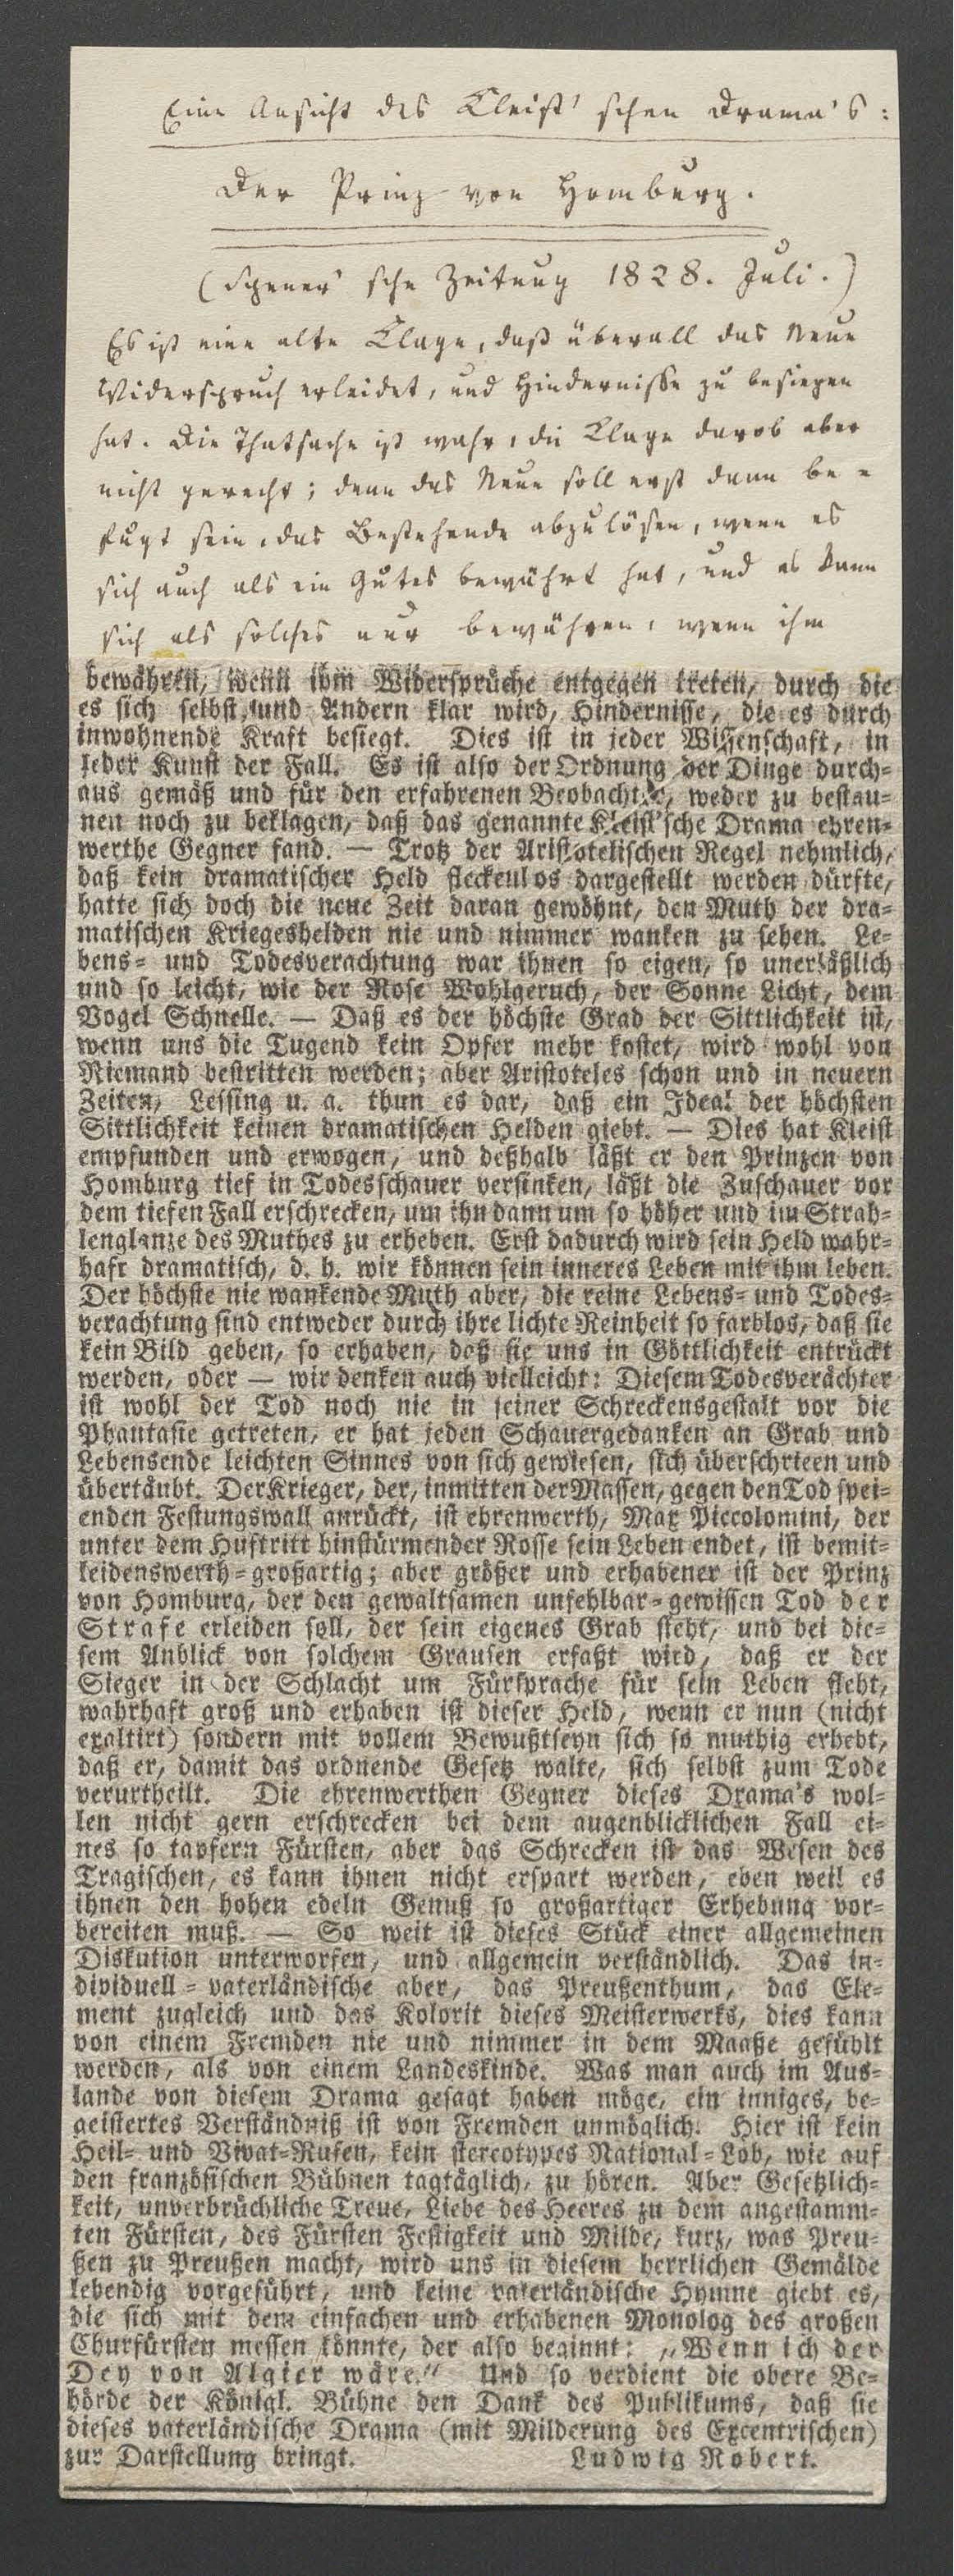 Eine Ansicht des Kleist'schen Drama's:
Der Prinz von Homburg.
(Spener'sche Zeitung 1828. Juli.)
Es ist eine alte Klage, daß überall das Neue
Widerspruch erleidet, und Hindernisse zu besiegen
hat. Die Thatsache ist wahr, die Klage darob aber
nicht gerecht; denn das Neue soll erst dann be-
fugt sein, das Bestehende abzulösen, wenn es
sich auch als ein Gutes bewährt hat, und es kann
sich als solches nur bewähren, wenn ihm
bewähren, wenn ihm Widersprüche entgegen treten, durch die
es sich selbst, und Andern klar wird, Hindernisse, die es durch
inwohnende Kraft besiegt. Dies ist in jeder Wissenschaft, in
jeder Kunst der Fall. Es ist also der Ordnung der Dinge durch-
aus gemäß und für den erfahrenen Beobachter, weder zu bestau-
nen noch zu beklagen, daß das genannte Kleist'sche Drama ehren-
werthe Gegner fand. — Trotz der Aristotelischen Regel nehmlich,
daß kein dramatischer Held fleckenlos dargestellt werden dürfte,
hatte sich doch die neue Zeit daran gewöhnt, den Muth der dra-
matischen Kriegeshelden nie und nimmer wanken zu sehen. Le-
bens- und Todesverachtung war ihnen so eigen, so unerläßlich
und so leicht, wie der Rose Wohlgeruch, der Sonne Licht, dem
Vogel Schnelle. — Daß es der höchste Grad der Sittlichkeit ist,
wenn uns die Tugend kein Opfer mehr kostet, wird wohl von
Niemand bestritten werden; aber Aristoteles schon und in neuern
Zeiten, Lessing u. a. thun es dar, daß ein Ideal der höchsten
Sittlichkeit keinen dramatischen Helden giebt. — Dies hat Kleist
empfunden und erwogen, und deßhalb läßt er den Prinzen von
Homburg tief in Todesschauer versinken, läßt die Zuschauer vor
dem tiefen Fall erschrecken, um ihn dann um so höher und im Strah-
lenglanze des Muthes zu erheben. Erst dadurch wird sein Held wahr-
haft dramatisch, d. h. wir können sein inneres Leben mit ihm leben.
Der höchste nie wankende Muth aber, die reine Lebens- und Todes-
verachtung sind entweder durch ihre lichte Reinheit so farblos, daß sie
kein Bild geben, so erhaben, daß sie uns in Göttlichkeit entrückt
werden, oder — wir denken auch vielleicht: Diesem Todesverächter
ist wohl der Tod noch nie in seiner Schreckensgestalt vor die
Phantasie getreten, er hat jeden Schauergedanken an Grab und
Lebensende leichten Sinnes von sich gewiesen, sich überschrieen und
übertäubt. Der Krieger, der, inmitten der Massen, gegen den Tod spei-
enden Festungswall anrückt, ist ehrenwerth, Max Piccolomini, der
unter dem Huftritt hinstürmender Rosse sein Leben endet, ist bemit-
leidenswerth-großartig; aber größer und erhabener ist der Prinz
von Homburg, der den gewaltsamen unfehlbar-gewissen Tod der
Strafe erleiden soll, der sein eigenes Grab sieht, und bei die-
sem Anblick von solchem Grausen erfaßt wird, daß er der
Sieger in der Schlacht um Fürsprache für sein Leben fleht,
wahrhaft groß und erhaben ist dieser Held, wenn er nun (nicht
exaltirt) sondern mit vollem Bewußtseyn sich so muthig erhebt,
daß er, damit das ordnende Gesetz walte, sich selbst zum Tode
verurtheilt. Die ehrenwerthen Gegner dieses Drama's wol-
len nicht gern erschrecken bei dem augenblicklichen Fall ei-
nes so tapfern Fürsten, aber das Schrecken ist das Wesen des
Tragischen, es kann ihnen nicht erspart werden, eben weil es
ihnen den hohen edeln Genuß so großartiger Erhebung vor-
bereiten muß. — So weit ist dieses Stück einer allgemeinen
Diskution unterworfen, und allgemein verständlich. Das in-
dividuell-vaterländische aber, das Preußenthum, das Ele-
ment zugleich und das Kolorit dieses Meisterwerks, dies kann
von einem Fremden nie und nimmer in dem Maaße gefühlt
werden, als von einem Landeskinde. Was man auch im Aus-
lande von diesem Drama gesagt haben möge, ein inniges, be-
geistertes Verständniß ist von Fremden unmöglich. Hier ist kein
Heil- und Vivat-Rufen, kein stereotypes National-Lob, wie auf
den französischen Bühnen tagtäglich, zu hören. Aber Gesetzlich-
keit, unverbrüchliche Treue, Liebe des Heeres zu dem angestamm-
ten Fürsten, des Fürsten Festigkeit und Milde, kurz, was Preu-
ßen zu Preußen macht, wird uns in diesem herrlichen Gemälde
lebendig vorgeführt, und keine vaterländische Hymne giebt es,
die sich mit dem einfachen und erhabenen Monolog des großen
Churfürsten messen könnte, der also beginnt: „Wenn ich der
Dey von Algier wäre.“ Und so verdient die obere Be-
hörde der Königl. Bühne den Dank des Publikums, daß sie
dieses vaterländische Drama (mit Milderung des Excentrischen)
zur Darstellung bringt. Ludwig Robert.